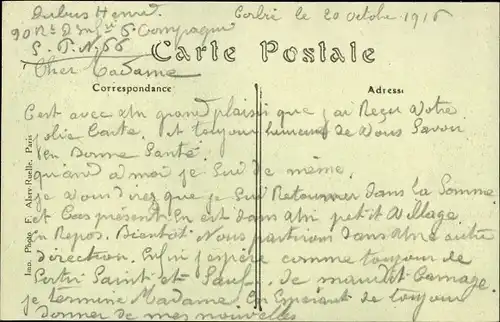 Dubus Henri Corbie le 20 octobre 1916
90 Rt D'Inf 6e Compagni
S. P. N. 66
Carte Postale
Cher Madame
Correspondance Adresse
C'est avec un grand plaisir que j'ai Reçu Votre
jolie Carte. Et toujour heureux de Vous Savoir
en Bonne Santé.
quand a moi je Suis de même.
je Vous direz que je Suis Retourner dans la Somme
et a présent En est dans un petit Village
en Repos. Bientôt Nous partiron dans une autre
direction. Enfin j'espère comme toujour de
Sortir Saint et Sauf. de maudit Carnage
je termine Madame En Espérant de toujour
donner de mes nouvelles
Imp. Photo F. Paris